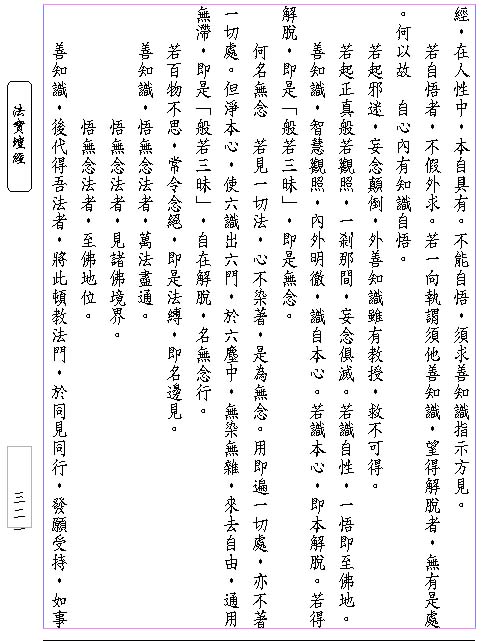 經，在人性中，本自具有。不能自悟，須求善知識指示方見。
若自悟者，不假外求。若一向執謂須他善知識，望得解脫者，無有是處
。何以故　自心內有知識自悟。
若起邪迷，妄念顛倒，外善知識雖有教授，救不可得。
若起正真般若觀照，一剎那間，妄念俱滅。若識自性，一悟即至佛地。
善知識，智慧觀照，內外明徹，識自本心。若識本心，即本解脫。若得
解脫，即是「般若三昧」，即是無念。
何名無念　若見一切法，心不染著，是為無念。用即遍一切處，亦不著
一切處。但淨本心，使六識出六門，於六塵中，無染無雜，來去自由，通用
無滯，即是「般若三昧」，自在解脫，名無念行。
若百物不思，常令念絕，即是法縛，即名邊見。
善知識，悟無念法者，萬法盡通。
悟無念法者，見諸佛境界。
悟無念法者，至佛地位。
善知識，後代得吾法者，將此頓教法門，於同見同行，發願受持，如事
法寶壇經
三二